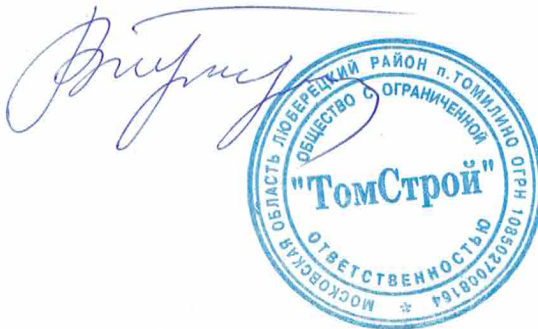 МОСКОВСКАЯ ОБЛАСТЬ ЛЮБЕРЕЦКИЙ РАЙОН п.ТОМИЛИНО ОГРН 1085027008164 *
ОБЩЕСТВО С ОГРАНИЧЕННОЙ
"ТомСтрой"
ОТВЕТСТВЕННОСТЬЮ